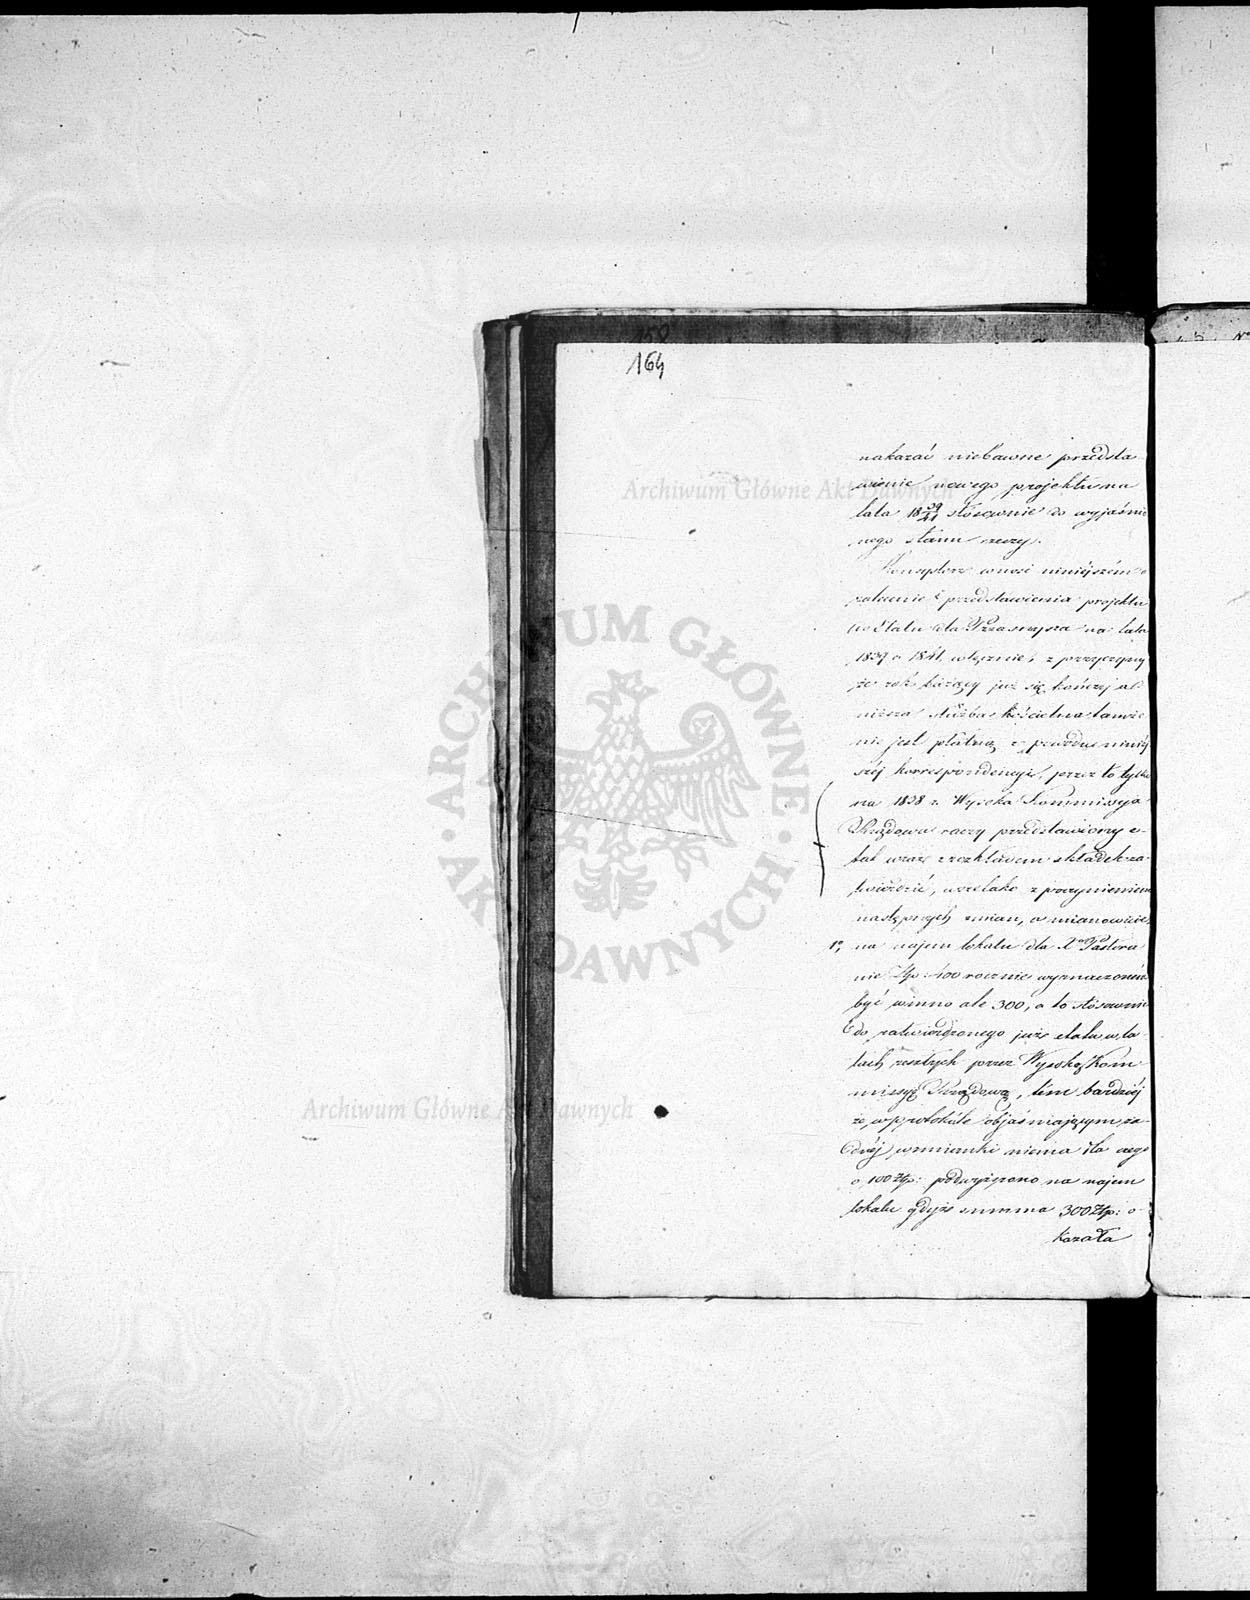 150
164
nakazać niebawne przedsta
wienie nowego projektu na
lata 18 39/41 stósownie do wyjaśnio
nego stanu rzeczy.
Konsystorz wnosi niniéjszém o
polecenie przedstawienia projektu
do Etatu dla Przasnysza na lata
1839 a 1841, włącznie, z przyczyny
że rok bieżący już się kończy a
niższa służba kościelna tamże
nie jest płatną z powodu niniéj
széj korrespondencyi, przez to tylko
na 1838 r. Wysoka Kommissya
Rządowa raczy przedstawiony e-
tat wraz z rozkładem składek za-
twierdzić, wszelako z poczynieniem
następnych zmian, a mianowicie,
1º, na najem lokalu dla Xa Pastora
nie Złp. 400 rocznie wyznaczonem
być winno ale 300, a to stósownie
do zatwierdzonego już etatu w la-
tach zeszłych przez Wysoką Kom
missyę Rządową, tém bardziéj
że w protokóle objaśniającym ża-
dnéj wzmianki niema dla czego
o 100 Złp: podwyższono na najem
lokalu gdyż summa 300 Złp: o-
kazała
Archiwum Główne Akt Dawnych
ARCHIWUM GŁÓWNE
AKT DAWNYCH
Archiwum Główne Akt Dawnych